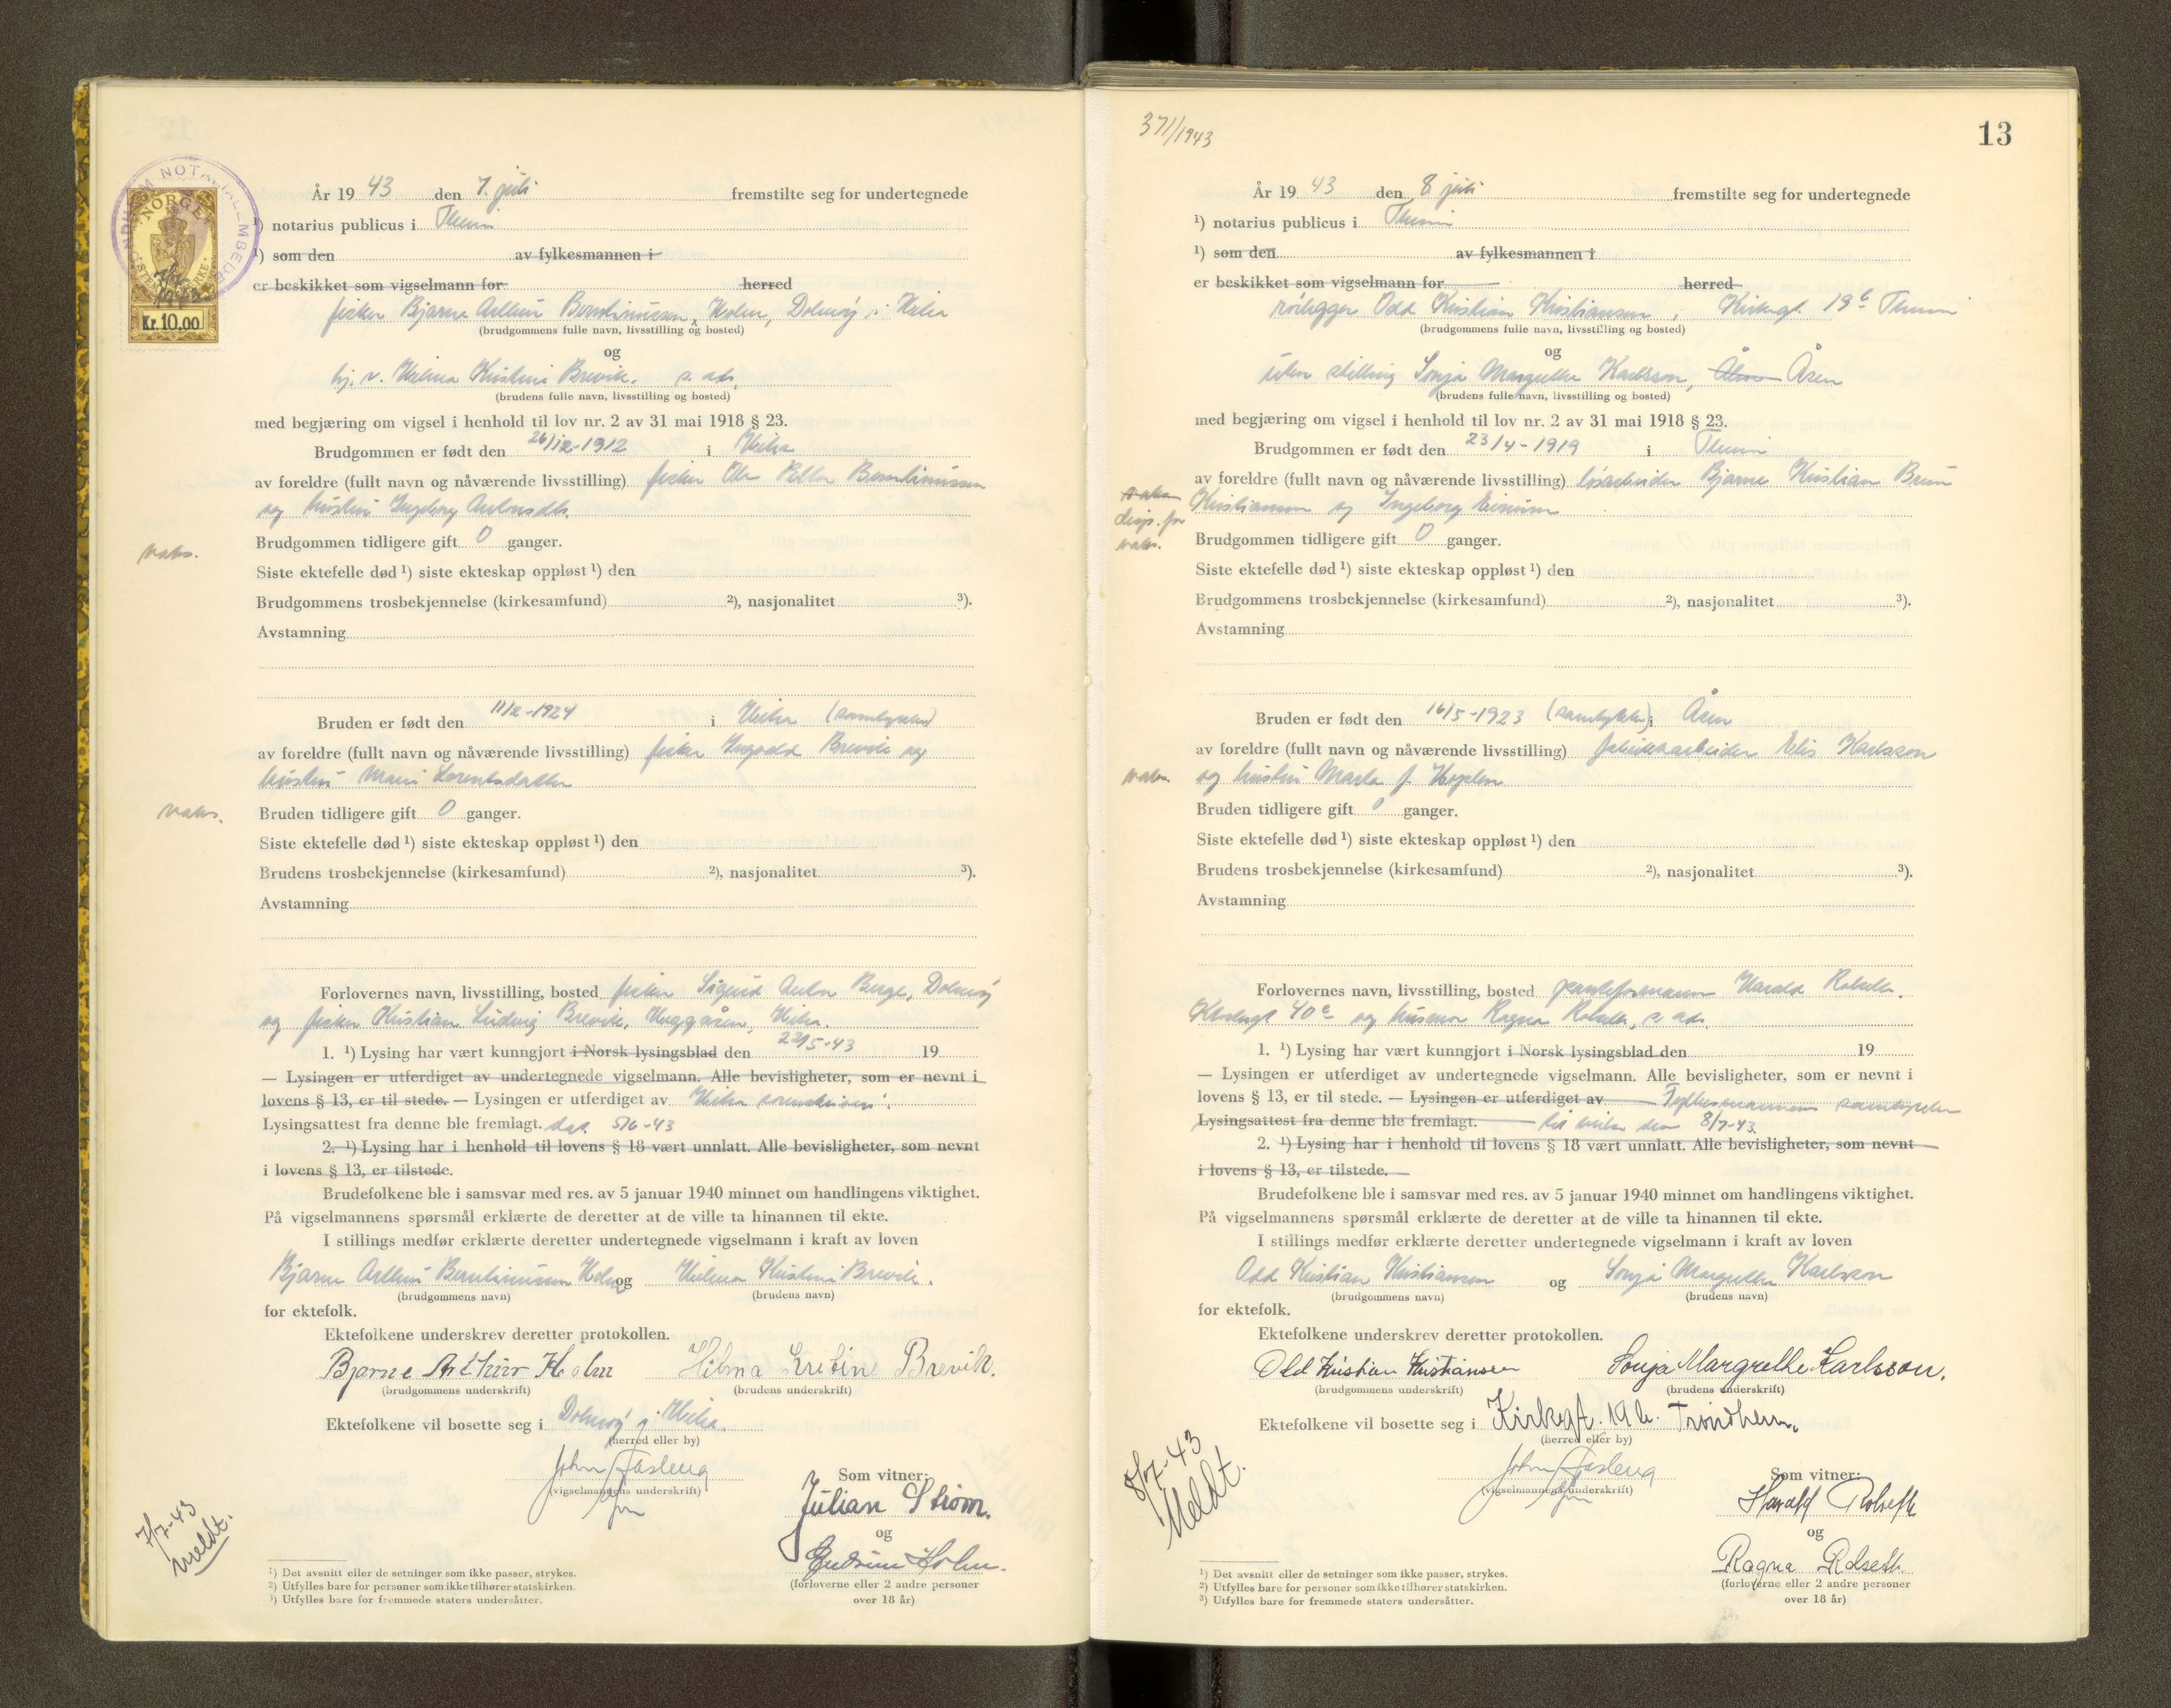 NOTARIALEMBEDE
NORGE
7/7 1943
Kr. 10.00
År 19 43 den 7. juli fremstilte seg for undertegnede
¹) notarius publicus i Thrm
¹) som den av fylkesmannen i
er beskikket som vigselmann for herred
fisker Bjarne Arthur Berntinussen Holm, Dolmøy i Hitra
(brudgommens fulle navn, livsstilling og bosted)
og
hj. v. Hilma Kristine Brevik, s. ads.
(brudens fulle navn, livsstilling og bosted)
med begjæring om vigsel i henhold til lov nr. 2 av 31 mai 1918 § 23.
Brudgommen er født den 26/12-1912 i Hitra
av foreldre (fullt navn og nåværende livsstilling) fisker Ole Petter Berntinussen
og hustru Ingeborg Antonsdtr.
vaks.
Brudgommen tidligere gift 0 ganger.
Siste ektefelle død ¹) siste ekteskap oppløst ¹) den
Brudgommens trosbekjennelse (kirkesamfund) ²), nasjonalitet ³).
Avstamning
Bruden er født den 11/2-1924 i Hitra (samtykke)
av foreldre (fullt navn og nåværende livsstilling) fisker Ingvald Brevik og
hustru Marie Lorentsdatter
vaks.
Bruden tidligere gift 0 ganger.
Siste ektefelle død ¹) siste ekteskap oppløst ¹) den
Brudens trosbekjennelse (kirkesamfund) ²), nasjonalitet ³).
Avstamning
Forlovernes navn, livsstilling, bosted fisker Sigurd Anton Berge, Dolmøy
og fisker Kristian Ludvig Brevik, Huggåsen, Hitra.
1. ¹) Lysing har vært kunngjort i Norsk lysingsblad den 22/5-43 19
— Lysingen er utferdiget av undertegnede vigselmann. Alle bevisligheter, som er nevnt i
lovens § 13, er til stede. — Lysingen er utferdiget av Hitra sorenskriveri.
Lysingsattest fra denne ble fremlagt. dat. 5/6-43
2. ¹) Lysing har i henhold til lovens § 18 vært unnlatt. Alle bevisligheter, som nevnt
i lovens § 13, er tilstede.
Brudefolkene ble i samsvar med res. av 5 januar 1940 minnet om handlingens viktighet.
På vigselmannens spørsmål erklærte de deretter at de ville ta hinannen til ekte.
I stillings medfør erklærte deretter undertegnede vigselmann i kraft av loven
Bjarne Arthur Berntinussen Holm og Hilma Kristine Brevik.
(brudgommens navn) (brudens navn)
for ektefolk.
Ektefolkene underskrev deretter protokollen.
Bjarne Arthur Holm Hilma Kristine Brevik.
(brudgommens underskrift) (brudens underskrift)
Ektefolkene vil bosette seg i Dolmøy i Hitra.
(herred eller by)
John Aasleng
(vigselmannens underskrift)
Som vitner:
Julian Strøm.
og
Gudrun Holm.
(forloverne eller 2 andre personer
over 18 år)
7/7-43
meldt.
¹) Det avsnitt eller de setninger som ikke passer, strykes.
²) Utfylles bare for personer som ikke tilhører statskirken.
³) Utfylles bare for fremmede staters undersåtter.
371/1943
13
År 19 43 den 8 juli fremstilte seg for undertegnede
¹) notarius publicus i Thrm
¹) som den av fylkesmannen i
er beskikket som vigselmann for herred
rørlegger Odd Kristian Kristiansen, Kirkegt. 19 b Thrm
(brudgommens fulle navn, livsstilling og bosted)
og
uten stilling Sonja Margrethe Karlsson, Åsen
(brudens fulle navn, livsstilling og bosted)
med begjæring om vigsel i henhold til lov nr. 2 av 31 mai 1918 § 23.
Brudgommen er født den 23/4-1919 i Thrm
av foreldre (fullt navn og nåværende livsstilling) løsarbeider Bjarne Kristian Bruun
Kristiansen og Ingeborg Einum
vaks.
disp. for
vaks.
Brudgommen tidligere gift 0 ganger.
Siste ektefelle død ¹) siste ekteskap oppløst ¹) den
Brudgommens trosbekjennelse (kirkesamfund) ²), nasjonalitet ³).
Avstamning
Bruden er født den 16/5-1923 (samtykke) i Åsen
av foreldre (fullt navn og nåværende livsstilling) fabrikkarbeider Elis Karlsson
og hustru Marta f. Hoplen
vaks.
Bruden tidligere gift 0 ganger.
Siste ektefelle død ¹) siste ekteskap oppløst ¹) den
Brudens trosbekjennelse (kirkesamfund) ²), nasjonalitet ³).
Avstamning
Forlovernes navn, livsstilling, bosted Harald Rolseth,
40 c og husmor Ragna Rolseth, s. ads.
1. ¹) Lysing har vært kunngjort i Norsk lysingsblad den 19
— Lysingen er utferdiget av undertegnede vigselmann. Alle bevisligheter, som er nevnt i
lovens § 13, er til stede. — Lysingen er utferdiget av Fylkesmannens samtykke
Lysingsattest fra denne ble fremlagt. til vielse den 8/7-43.
2. ¹) Lysing har i henhold til lovens § 18 vært unnlatt. Alle bevisligheter, som nevnt
i lovens § 13, er tilstede.
Brudefolkene ble i samsvar med res. av 5 januar 1940 minnet om handlingens viktighet.
På vigselmannens spørsmål erklærte de deretter at de ville ta hinannen til ekte.
I stillings medfør erklærte deretter undertegnede vigselmann i kraft av loven
Odd Kristian Kristiansen og Sonja Margrethe Karlsson
(brudgommens navn) (brudens navn)
for ektefolk.
Ektefolkene underskrev deretter protokollen.
Odd Kristian Kristiansen Sonja Margrethe Karlsson.
(brudgommens underskrift) (brudens underskrift)
Ektefolkene vil bosette seg i Kirkegt. 19 b. Trondheim.
(herred eller by)
John Aasleng
(vigselmannens underskrift)
Som vitner:
Harald Rolseth
og
Ragna Rolseth.
(forloverne eller 2 andre personer
over 18 år)
8/7-43
Meldt.
¹) Det avsnitt eller de setninger som ikke passer, strykes.
²) Utfylles bare for personer som ikke tilhører statskirken.
³) Utfylles bare for fremmede staters undersåtter.